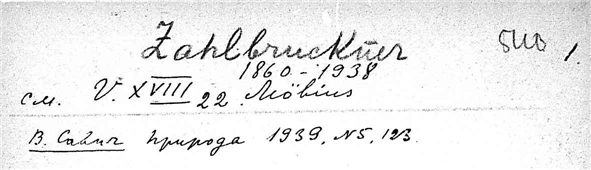 Zahlbruckner БИО 1
1860-1938
см. V. XVIII 22. Möbius
В. Савич Природа 1939, N5, 123.